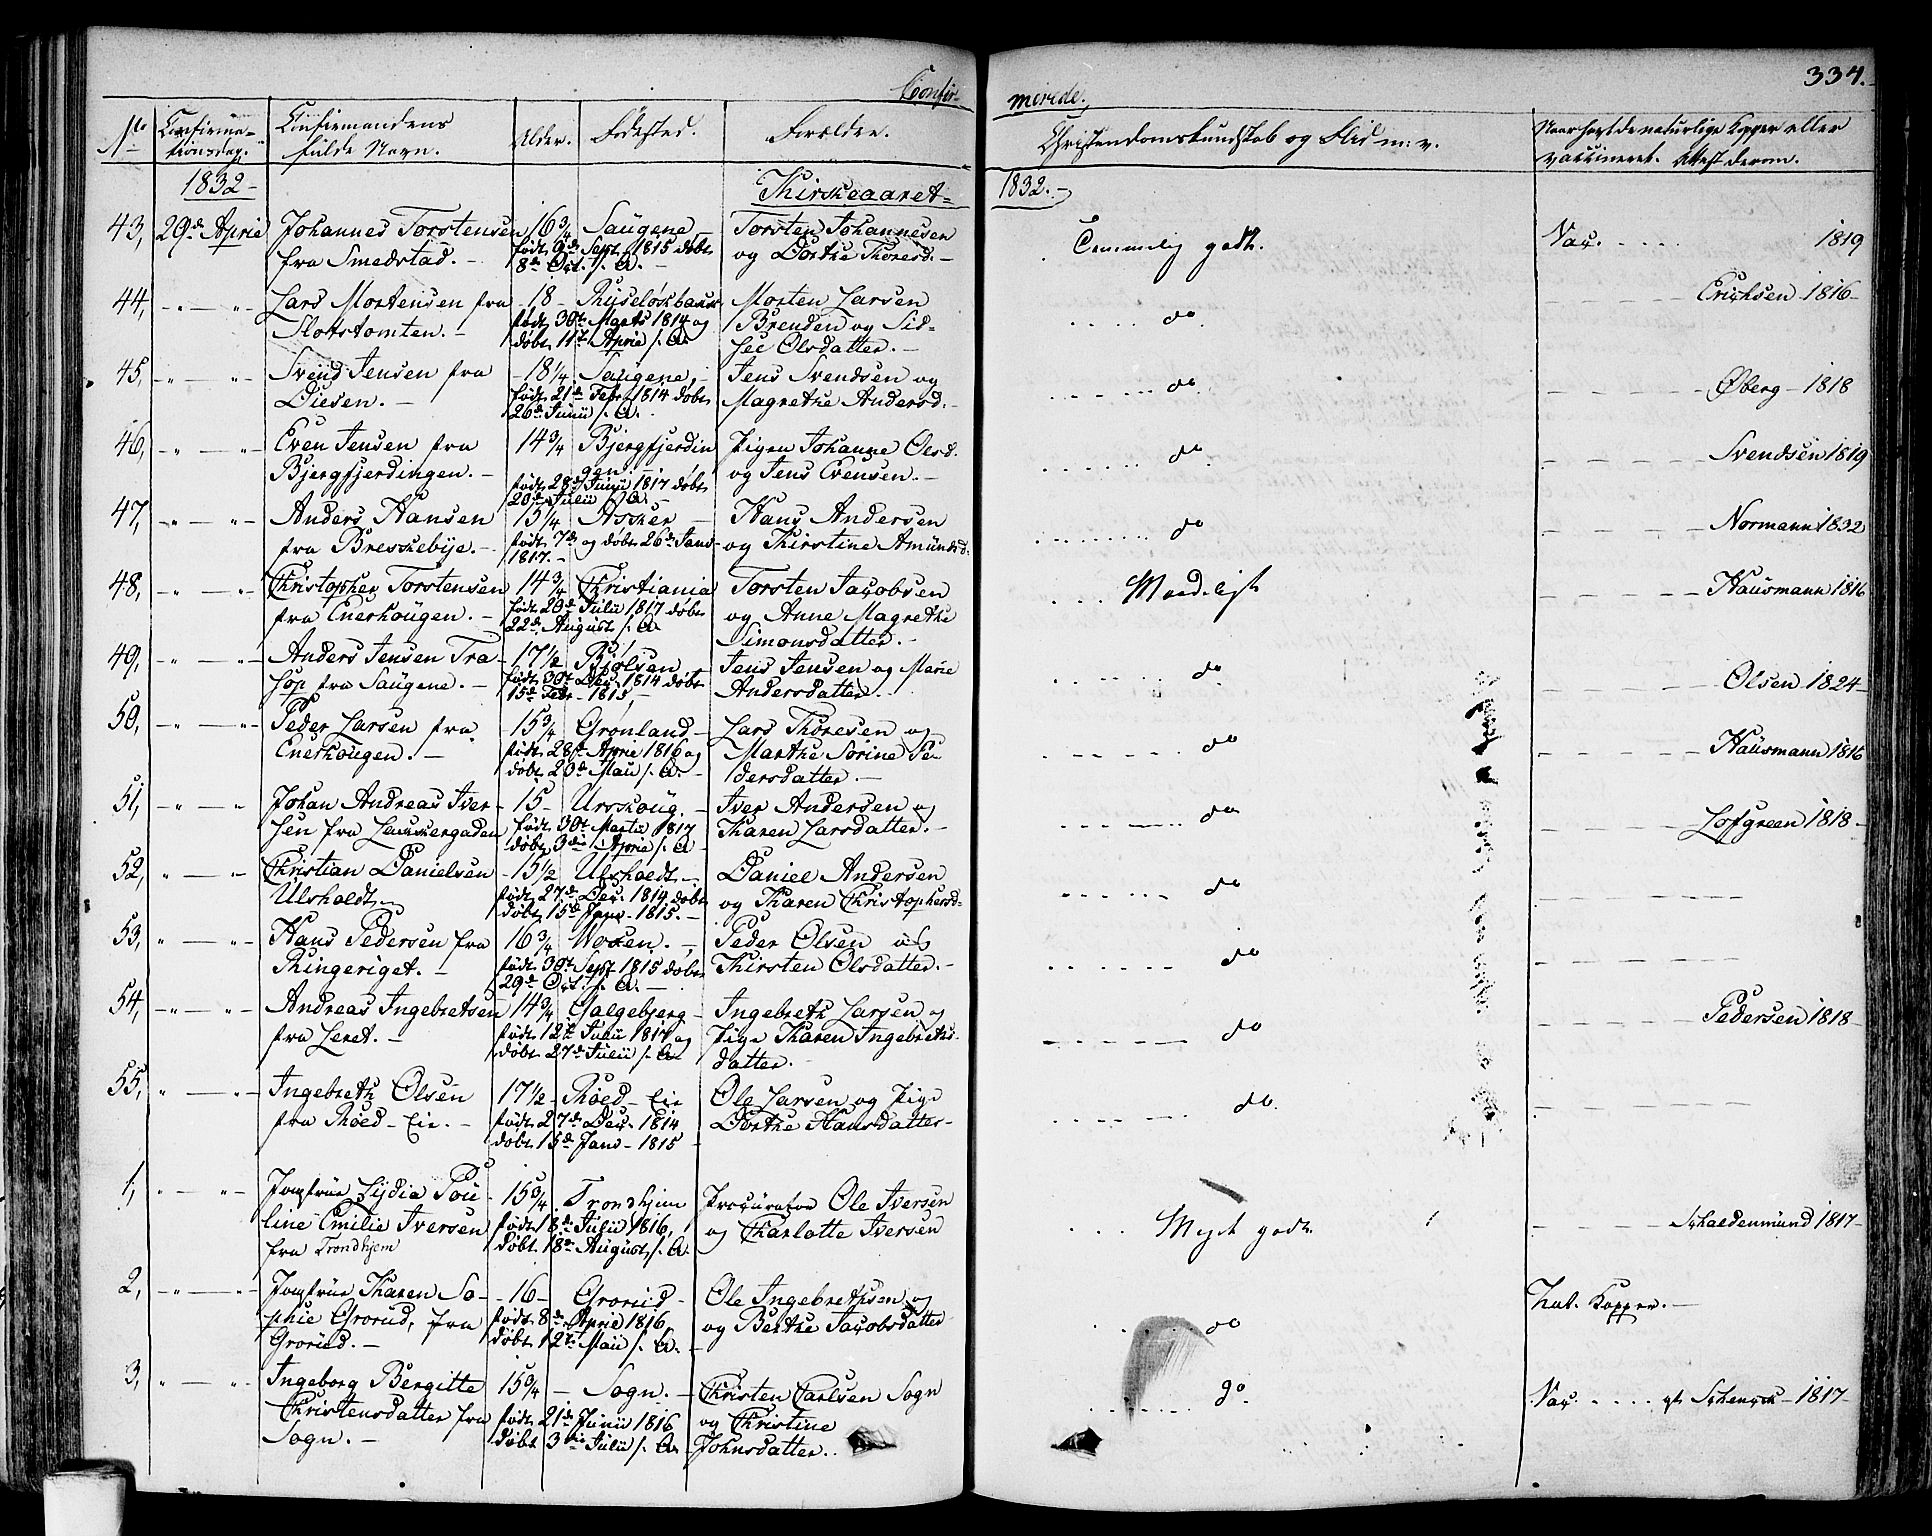 Confir-
merede.
334.
No
Confirma-
tionsdag.
Confirmandens
fulde Navn.
Alder.
Fødested.
Forældre.
Christendomskundskab og Flid m: v.
Naar havt de naturlige Kopper eller
vaccineret. Attest derom.
1832-
1832.-
43, 29de April Johannes Torstensen 16 3/4 Saugene Torsten Johannesen
fra Smedstad. - født 9de Sept 1815 døbt og Dorthe Thoresd. -
8de Oct. s. A. -
Temmelig godt. Vac. . . . . 1819
44, -"- -"- Lars Mortensen fra -18- Morten Larsen
Slotstomten. - født 30t Marts 1814 og Brenden og Sid-
døbt 11t April s. A. sel Olsdatter. -
. . . . . do. Erichsen 1816-
45, -"- -"- Svend Jensen fra -18 1/4 Saugene, - Jens Svendsen og
Diesen. - født 21de Febr 1814 døbt Magrethe Andersd. -
26de Junii s. A.
. . . . . . do. Øberg - 1818
46, -"- -"- Even Jensen fra 14 3/4 Bjergfjerdin Pigen Johanne Olesd.
Bjergfjerdingen. - gen - og Jens Evensen. -
født 28de Junii 1817 døbt
20de Julii s. A. -
. . . . . . do. Svendsen 1819
47, -"- -"- Anders Hansen 15 1/4 Asker - Hans Andersen
fra Breskebye. - født 7de og døbt 26de Janu- og Kirstine Amundsd.
1817. -
. . . . . . do Normann 1832
48, -"- -"- Christopher Torstensen 14 3/4 Christiania Torsten Jacobsen
fra Enerhougen. - født 20de Julii 1817 døbt og Anne Magrethe
22de August s. A Simonsdatter. -
. . . Maadeligt Hausmann 1816
49, -"- -"- Anders Jensen Tra- 17 1/2 Bjølsen Jens Jensen og Marie
sop fra Saugene. - født 30t Dec. 1814 døbt Andersdatter. -
15de Febr - 1815, -
. . . . . . do. Olsen 1824-
50, -"- -"- Peder Larsen fra -15 3/4 Grønland - Lars Thoresen og
Enerhougen. - født 28de April 1816 og Marthe Sorine Pe-
døbt 20de Maii s. A. - dersdatter. -
. . . . . . do Hausmann 1816
51, -"- -" Johan Andreas Iver- -15- Urskoug - Iver Andersen og
sen fra født 30t Marts 1817 Karen Larsdatter. -
døbt 3die April s. A
. . . . . . do Lofgreen 1818-
52, " - " Christian Danielsen -15 1/2 Ulsholdt - Daniel Andersen
Ulsholdt - født 27de Dec. 1814 døbt og Karen Christophersd-
døbt 15de Janu - 1815. -
. . . . . . do
53, " - "- Hans Pedersen fra 16 3/4 Peder Olsen og
Ringeriget. - født 30t Sept 1815 døbt Kirsten Olsdatter. -
29de Oct. s. A. -
. . . . . . do
54, -"- -"- Andreas Ingebretsen 14 3/4 Galgebjerg - Ingebreth Larsen og
fra Leret. - født 12te Julii 1817 og Pige Karen Ingebreths-
døbt 27de Julii s. A datter. -
do Pedersen 1818-
55, " - "- Ingebreth Olsen 17 1/2 Røed - Eie Ole Larsen og Pige
fra Røed - Eie. - født 27de Dec. 1814 Dorthe Hansdatter-
døbt 15de Janu - 1815 -
. . . . . . do.
1, " - "- Jomfrue Lydia Pou- 15 3/4 Trondhjem Procurator Ole Iversen
line Emilie Iversen født 18de Julii 1816, og Charlotte Iversen
fra Trondhjem døbt 18de August s. A.
. . Meget godt. Schaldenmund 1817-
2, -"- -"- Jomfrue Karen So- -16- Grorud - Ole Ingebrethsen og
phie Grorud, fra født 8de April 1816, og Berthe Jacobsdatter
Grorud. - døbt 12te Maii s. A. -
. . . . . . do Nat. Kopper. -
3, " - "- Ingeborg Bergitte 15 3/4 - Sogn. - Christen Carlsen Sogn
Christensdatter fra født 21de Junii 1816 og Christine
Sogn. - døbt 3die Julii s. A. - Johnsdatter. .
. . . . . . do. Vac. . . . . . Schenck - 1817-